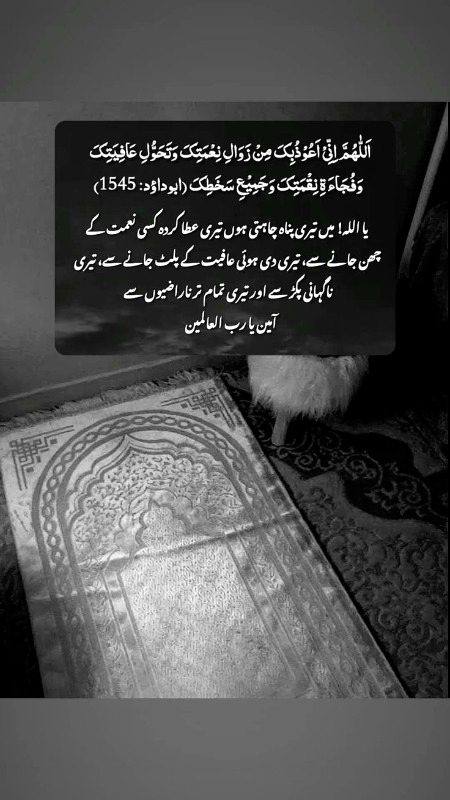 اَللّٰهُمَّ اِنِّیْ اَعُوْذُبِکَ مِنْ زَوَالِ نِعْمَتِکَ وَتَحَوُّلِ عَافِیَتِکَ
وَفُجَاءَةِ نِقْمَتِکَ وَجَمِیْعِ سَخَطِکَ (ابوداؤد: 1545)
یا اللہ! میں تیری پناہ چاہتی ہوں تیری عطا کردہ کسی نعمت کے
چھن جانے سے، تیری دی ہوئی عافیت کے پلٹ جانے سے، تیری
ناگہانی پکڑ سے اور تیری تمام تر ناراضیوں سے
آمین یا رب العالمین